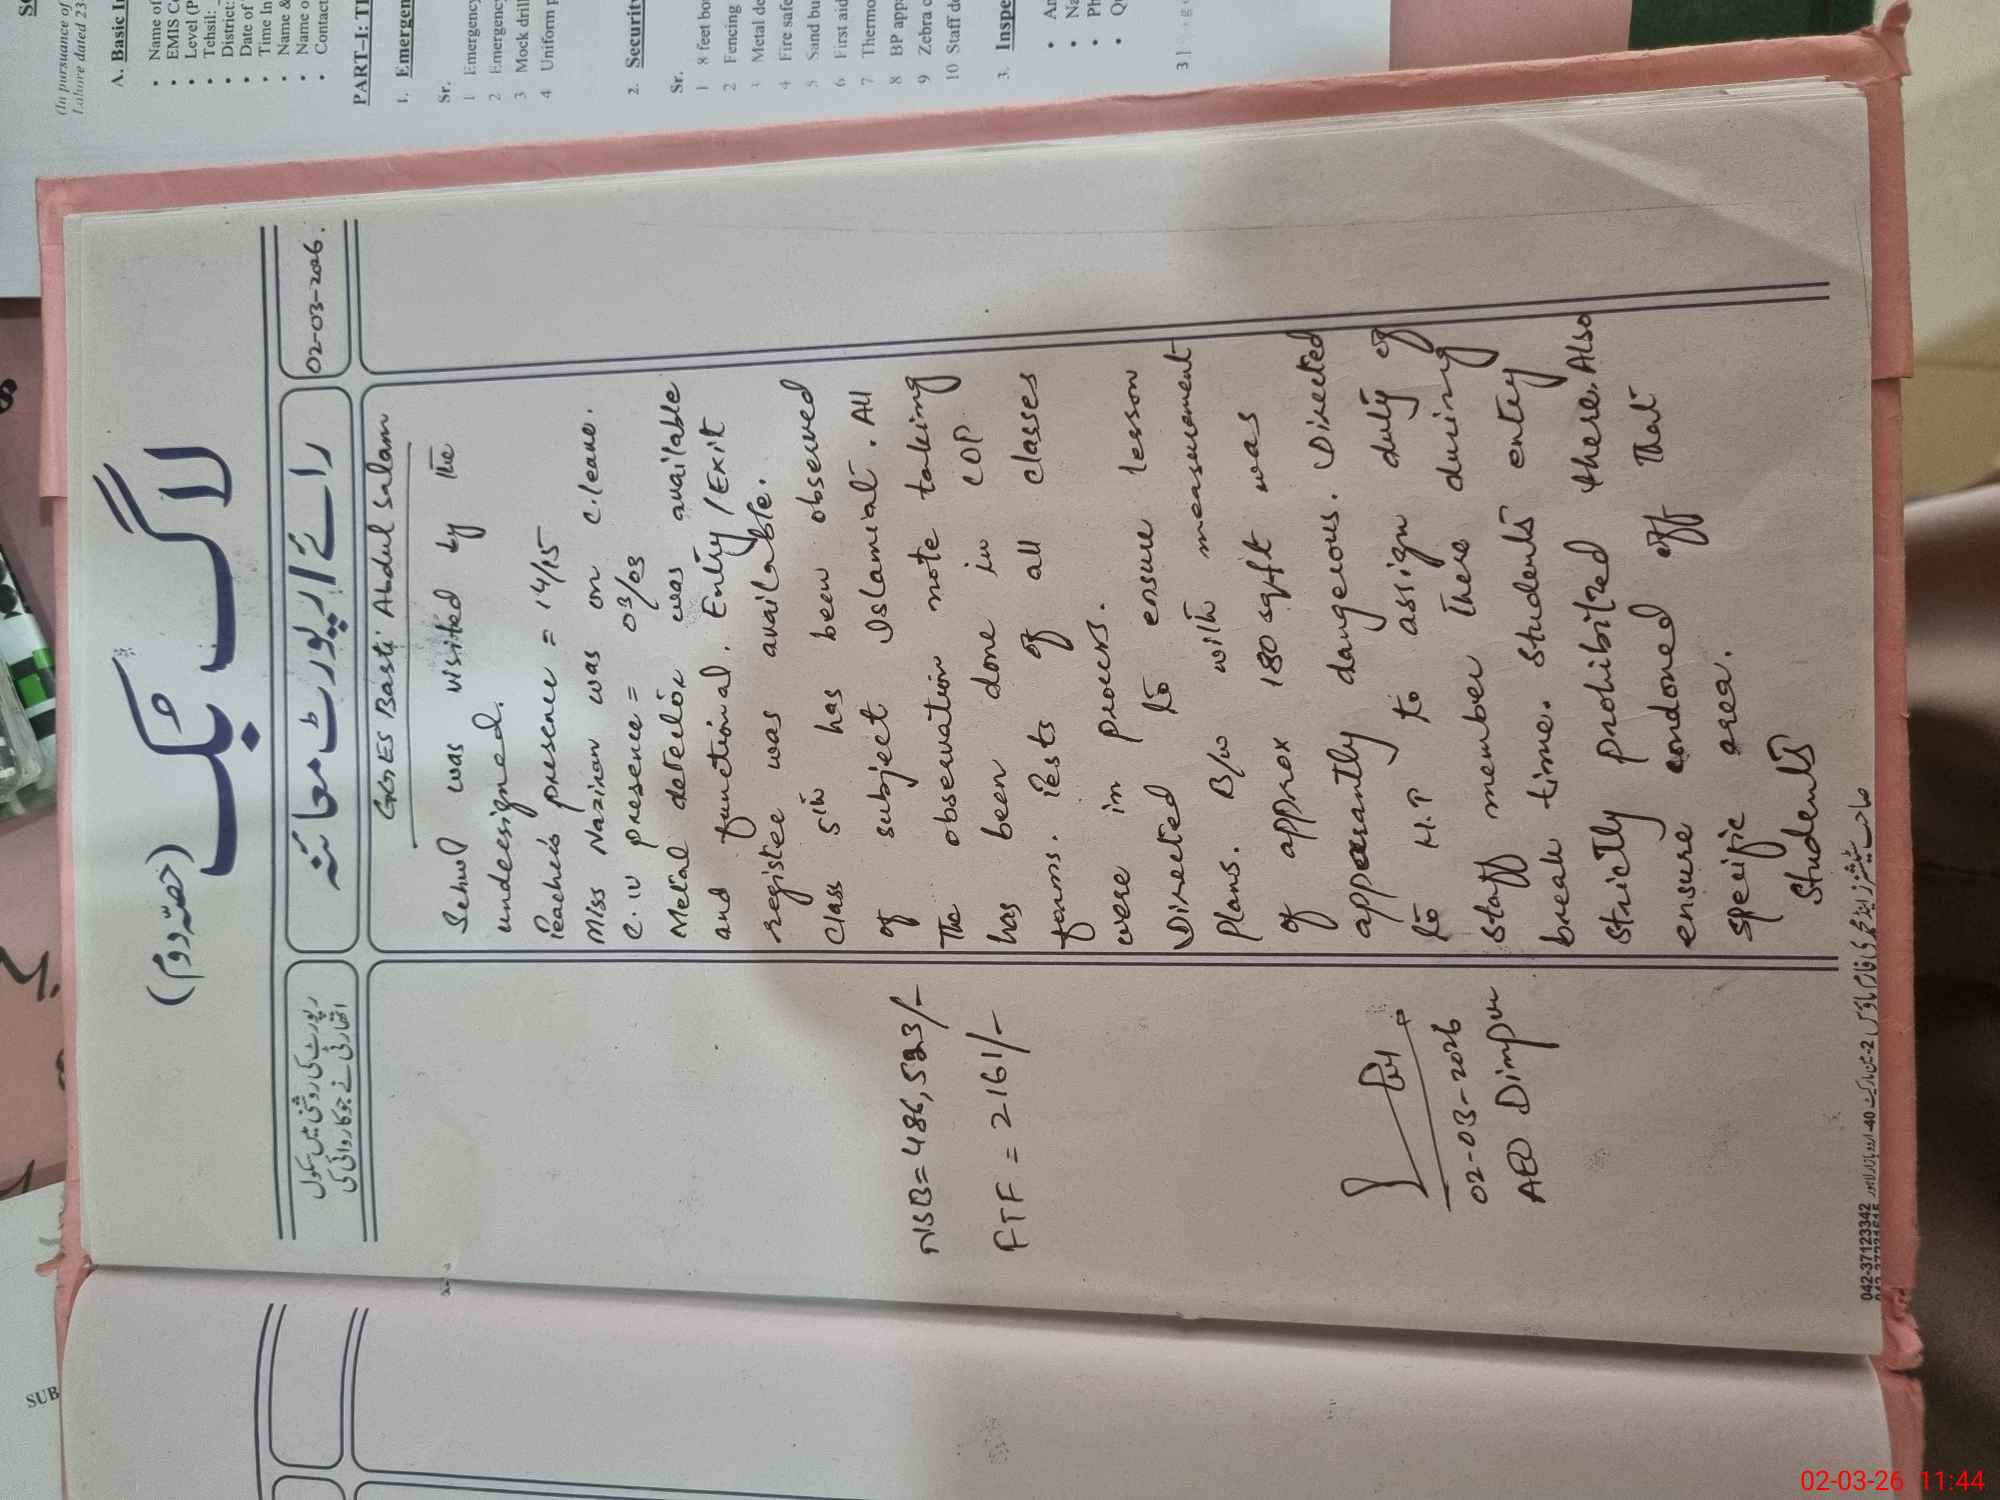 لاگ بک
(حصّہ دوم)
رائے / رپورٹ معائنہ
02-03-2026.
رپورٹ کی روشنی میں سکول
اتھارٹی نے جو کاروائی کی
GGES Basti Abdul Salam
School was visited by the
undersigned.
Teachers presence = 14/15
Miss Naziran was on c.leave.
C.IV presence = 03/03
Metal detector was available
and functional. Entry/Exit
register was available.
Class 5th has been observed
of subject Islamiat. All
The observation note taking
has been done in COP
forms. Tests of all classes
were in process.
Directed to ensure lesson
Plans. B/w with measurement
of approx 180 sqft was
apparantly dangerous. Directed
to H.T to assign duty of
staff member there during
break time. Students entry
strictly prohibited there. Also
ensure condoned off that
specific area.
Students
NSB = 486,523/-
FTF = 2161/-
02-03-2026
AEO Dimpur
042-37123342
SUB
(In pursuance of
Lahore dated 23
A. Basic In
• Name of
• EMIS Co
• Level (P
• Tehsil:
• District:
• Date of
• Time In
• Name &
• Name o
• Contact
PART-I: TI
1. Emergen
Sr.
1 Emergency
2 Emergency
3 Mock drill
4 Uniform p
2. Security
Sr.
1 8 feet bou
2 Fencing
3 Metal de
4 Fire safe
5 Sand bu
6 First aid
7 Thermo
8 BP appa
9 Zebra c
10 Staff de
3. Inspe
• An
• Na
• Ph
• Qu
02-03-26 11:44